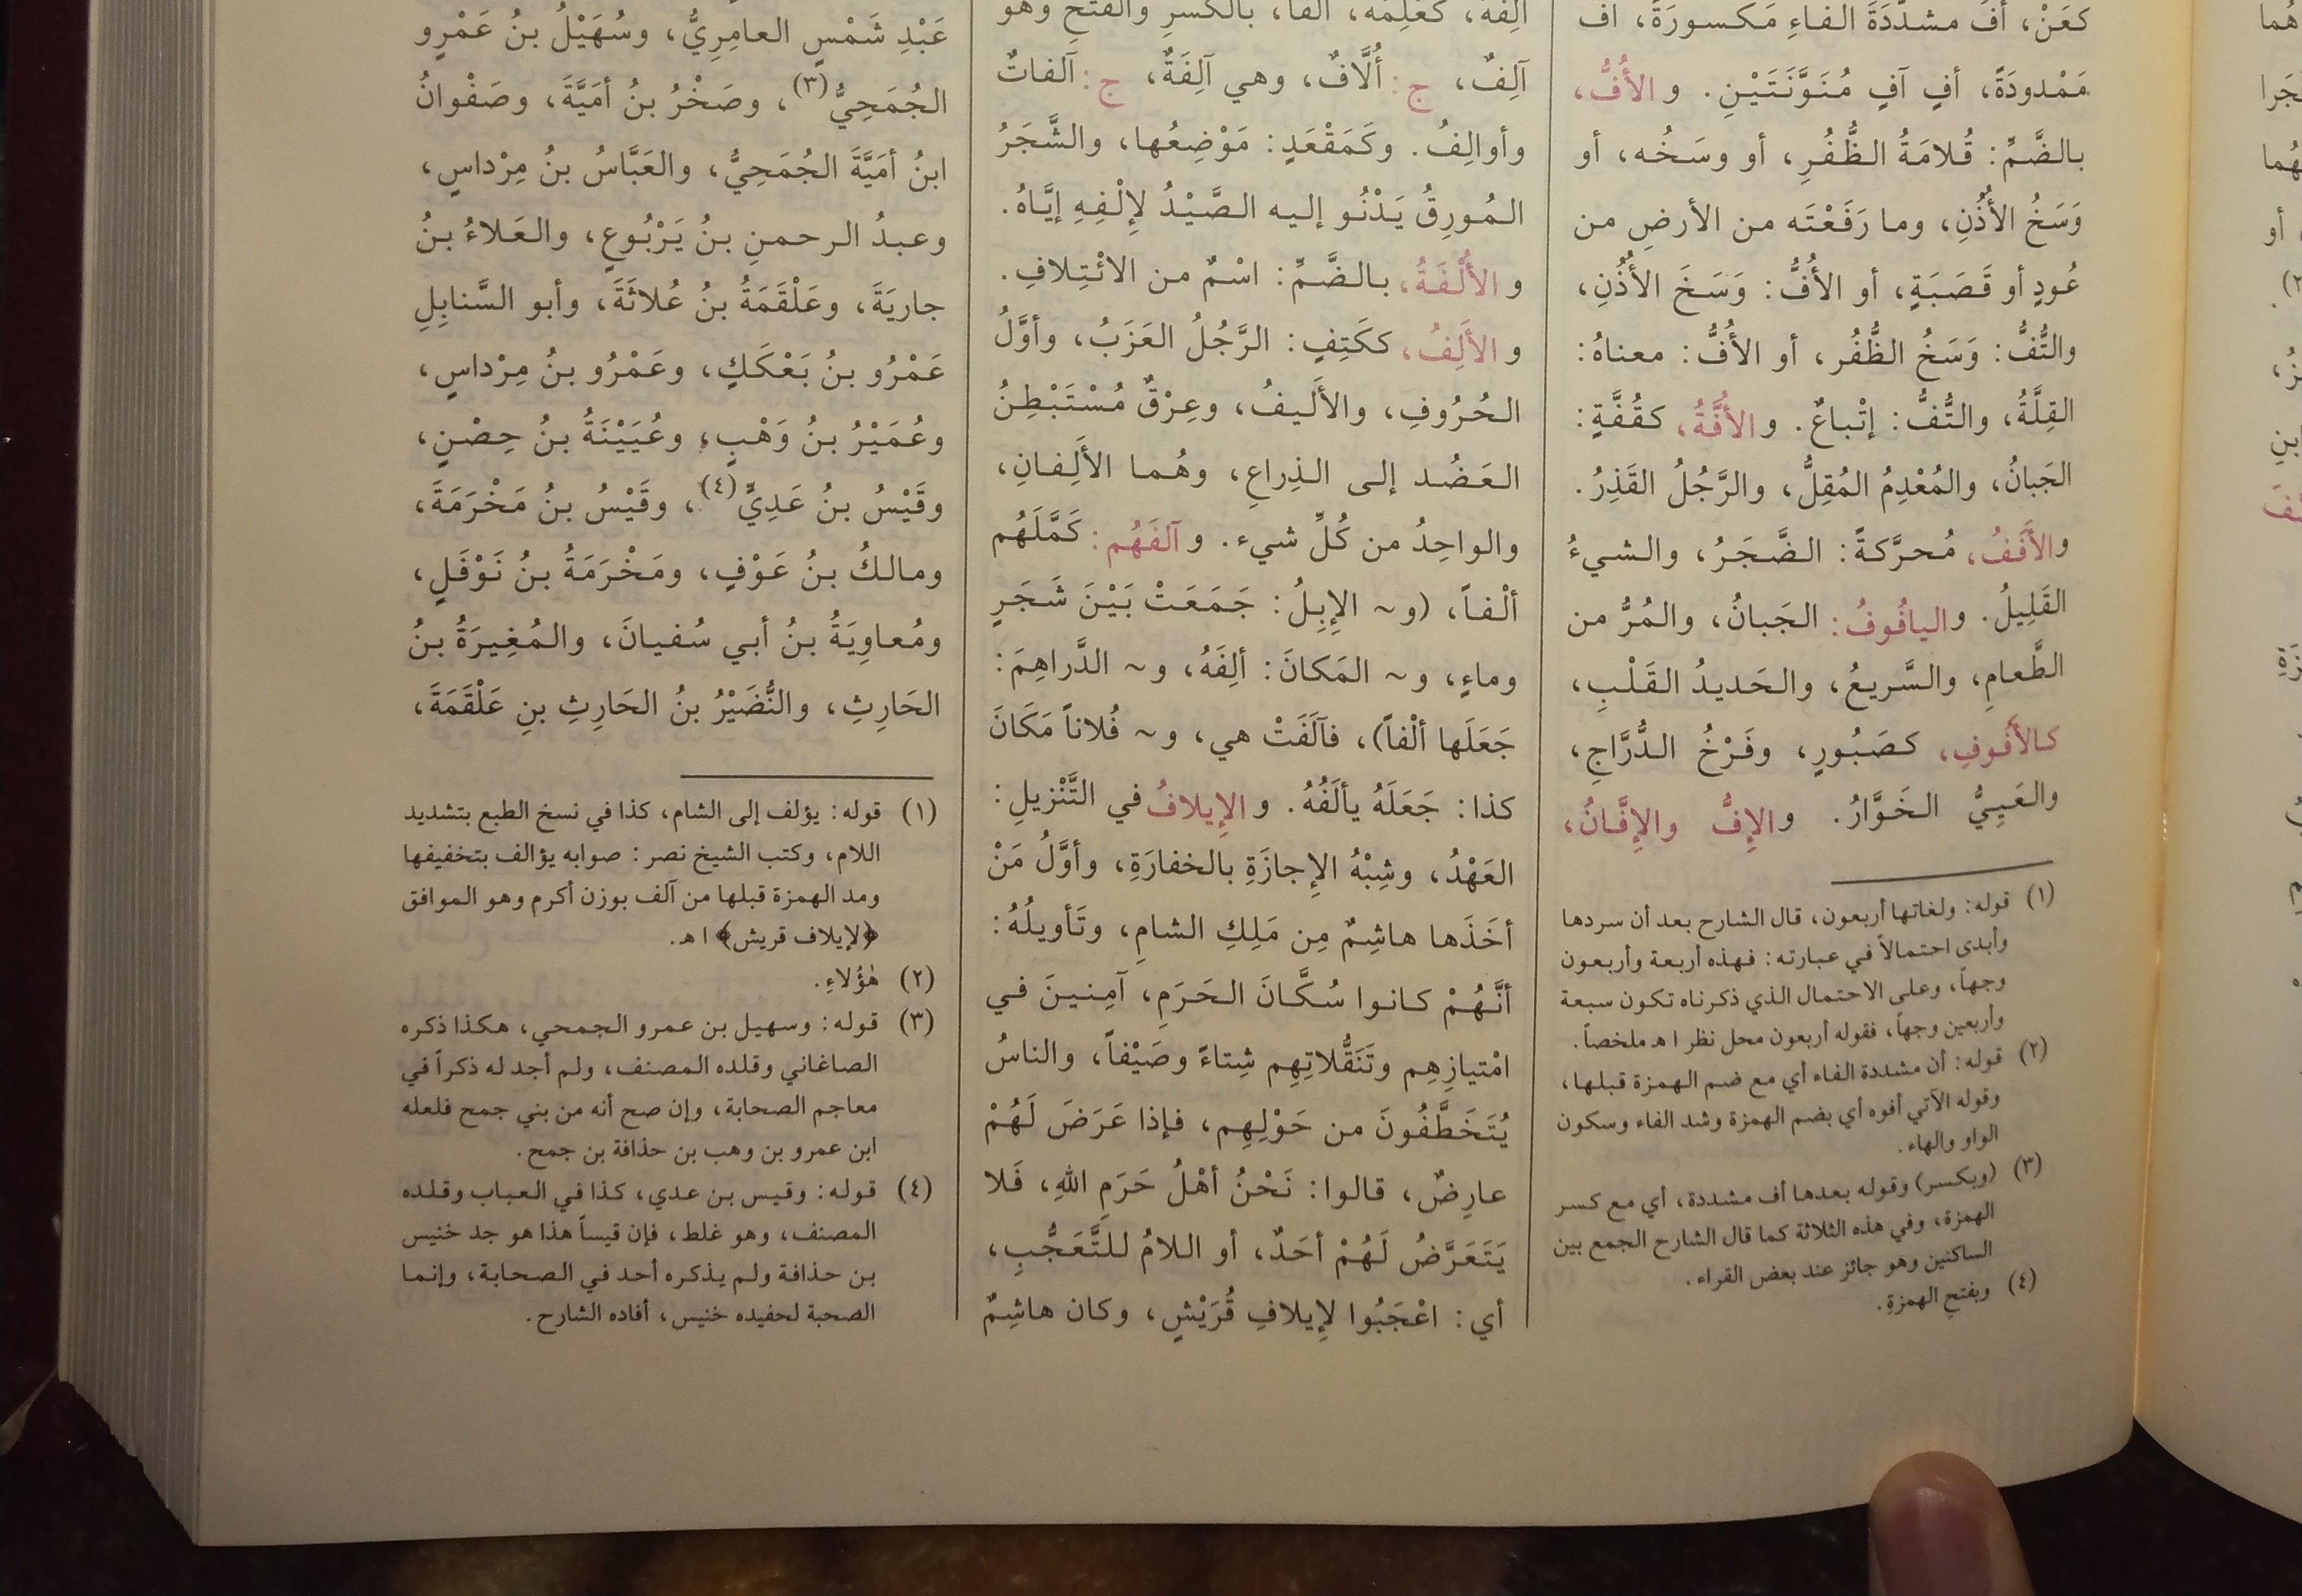 كعَنْ، أُفَّ مشدَّدَةَ الفاءِ مَكسورَةً، آف
مَمْدودَةً، أفٍ آفٍ مُنَوَّنَتَيْنِ. والأُفُّ،
بالضَّمِّ: قُلامَةُ الظُّفُرِ، أو وسَخُه، أو
وَسَخُ الأُذُنِ، وما رَفَعْتَه من الأرضِ من
عُودٍ أو قَصَبَةٍ، أو الأُفُّ: وَسَخَ الأُذُنِ،
والتُّفُّ: وَسَخُ الظُّفُر، أو الأُفُّ: معناهُ:
القِلَّةُ، والتُّفُّ: إتْباعٌ. والأُفَّةُ، كقُفَّةٍ:
الجَبانُ، والمُعْدِمُ المُقِلُّ، والرَّجُلُ القَذِرُ.
والأَفَفُ، مُحرَّكةً: الضَّجَرُ، والشيءُ
القَلِيلُ. واليافُوفُ: الجَبانُ، والمُرُّ من
الطَّعامِ، والسَّريعُ، والحَديدُ القَلْبِ،
كالأَفُوفِ، كصَبُورٍ، وفَرْخُ الدُّرَّاجِ،
والعَيِيُّ الخَوَّارُ. والإِفُّ والإِفَّانُ،
(١) قوله: ولغاتها أربعون، قال الشارح بعد أن سردها
وأبدى احتمالاً في عبارته: فهذه أربعة وأربعون
وجهاً، وعلى الاحتمال الذي ذكرناه تكون سبعة
وأربعين وجهاً، فقوله أربعون محل نظر ا هـ ملخصاً.
(٢) قوله: أن مشددة الفاء أي مع ضم الهمزة قبلها،
وقوله الآتي أفوه أي بضم الهمزة وشد الفاء وسكون
الواو والهاء.
(٣) (وبكسر) وقوله بعدها أف مشددة، أي مع كسر
الهمزة، وفي هذه الثلاثة كما قال الشارح الجمع بين
الساكنين وهو جائز عند بعض القراء.
(٤) وبفتح الهمزةِ.
ألِفَهُ، كعَلِمَه، ألفاً، بالكسرِ والفتحِ وهو
آلِفٌ، ج: أُلَّافٌ، وهي آلِفَةٌ، ج: آلفاتٌ
وأوالِفُ. وكَمَقْعَدٍ: مَوْضِعُها، والشَّجَرُ
المُورِقُ يَدْنُو إليه الصَّيْدُ لإِلْفِهِ إيَّاهُ.
والأُلْفَةُ، بالضَّمِّ: اسْمٌ من الائْتِلافِ.
والأَلِفُ، ككَتِفٍ: الرَّجُلُ العَزَبُ، وأوَّلُ
الحُرُوفِ، والأَلَيفُ، وعِرْقٌ مُسْتَبْطِنُ
العَضُد إلى الذِراعِ، وهُما الأَلِفانِ،
والواحِدُ من كُلِّ شيء. وآلَفَهُم: كَمَّلَهُم
ألْفاً، (و~ الإِبِلُ: جَمَعَتْ بَيْنَ شَجَرٍ
وماءٍ، و~ المَكانَ: ألِفَهُ، و~ الدَّراهِمَ:
جَعَلَها ألْفاً)، فآلَفَتْ هي، و~ فُلاناً مَكَانَ
كذا: جَعَلَهُ يألَفُهُ. والإيلافُ في التَّنْزيلِ:
العَهْدُ، وشِبْهُ الإِجازَةِ بالخفارَةِ، وأوَّلُ مَنْ
أخَذَها هاشِمٌ مِن مَلِكِ الشامِ، وتَأويلُهُ:
أنَّهُمْ كانوا سُكَّانَ الحَرَمِ، آمِنينَ في
امْتيازِهِم وتَنَقُّلاتِهِم شِتاءً وصَيْفاً، والناسُ
يُتَخَطَّفُونَ من حَوْلِهِم، فإذا عَرَضَ لَهُمْ
عارِضٌ، قالوا: نَحْنُ أهْلُ حَرَمِ اللهِ، فَلا
يَتَعَرَّضُ لَهُمْ أحَدٌ، أو اللامُ لِلتَّعَجُّبِ،
أي: اعْجَبُوا لإِيلافِ قُرَيْشٍ، وكان هاشِمٌ
عَبْدِ شَمْسٍ العامِرِيُّ، وسُهَيْلُ بنُ عَمْرٍو
الجُمَحِيُّ(٣)، وصَخْرُ بنُ أمَيَّةَ، وصَفْوانُ
ابنُ أمَيَّةَ الجُمَحِيُّ، والعَبَّاسُ بنُ مِرْداسٍ،
وعبدُ الرحمنِ بنُ يَرْبُوعٍ، والعَلاءُ بنُ
جاريَةَ، وعَلْقَمَةُ بنُ عُلاثَةَ، وأبو السَّنابِلِ
عَمْرُو بنُ بَعْكَكٍ، وعَمْرُو بنُ مِرْداسٍ،
وعُمَيْرُ بنُ وَهْبٍ، وعُيَيْنَةُ بنُ حِصْنٍ،
وقَيْسُ بنُ عَدِيٍّ(٤)، وقَيْسُ بنُ مَخْرَمَةَ،
ومالكُ بنُ عَوْفٍ، ومَخْرَمَةُ بنُ نَوْفَلٍ،
ومُعاوِيَةُ بنُ أبي سُفيانَ، والمُغِيرَةُ بنُ
الحَارِثِ، والنُّضَيْرُ بنُ الحَارِثِ بنِ عَلْقَمَةَ،
(١) قوله: يؤلف إلى الشام، كذا في نسخ الطبع بتشديد
اللام، وكتب الشيخ نصر: صوابه يؤالف بتخفيفها
ومد الهمزة قبلها من آلف بوزن أكرم وهو الموافق
﴿لإيلاف قريش﴾ ا هـ.
(٢) هٰؤُلاءِ.
(٣) قوله: وسهيل بن عمرو الجمحي، هكذا ذكره
الصاغاني وقلده المصنف، ولم أجد له ذكراً في
معاجم الصحابة، وإن صح أنه من بني جمح فلعله
ابن عمرو بن وهب بن حذافة بن جمح.
(٤) قوله: وقيس بن عدي، كذا في العباب وقلده
المصنف، وهو غلط، فإن قيساً هذا هو جد خنيس
بن حذافة ولم يذكره أحد في الصحابة، وإنما
الصحبة لحفيده خنيس، أفاده الشارح.